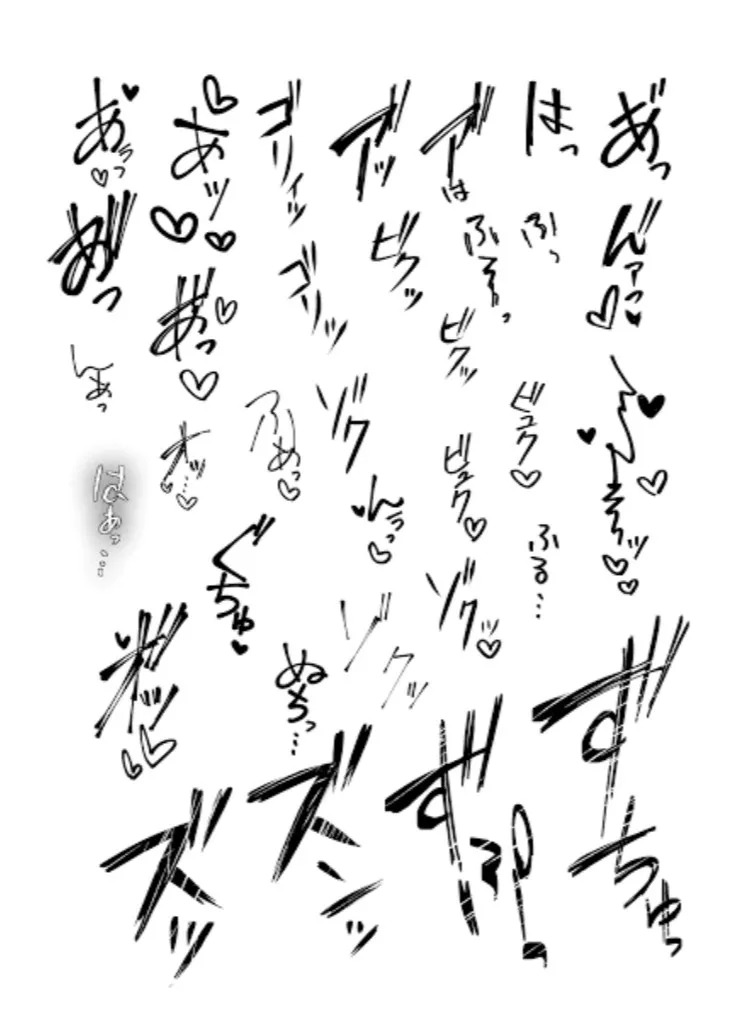 あ゛っ
んァっ♡♥
ん〜〜そっッ♡♡
ずちゅっ
はっ
ふっ
ビュク♡
ふる…
ア゛は
ふぅっ
ビクッ
ビュク♡
ゾクッ♡
ア゛ッ
ビクッ
んぅっ♡
ゾクッ
ゴリィッ
ゴリッ
ゾク
ふあっ♡
ぬちっ…
ズンッ
あッ♡
あ゛っ♡
オッ…♡
ぐちゅ♥
ズッ
あぅっ♡
あ゛っ
んあっ
はぁっ…
オ゛ッ♡♡